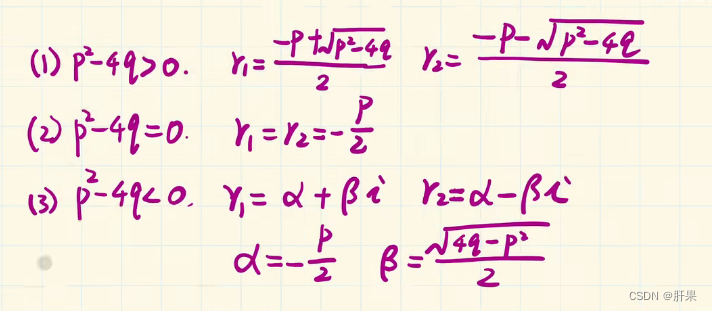 (1) p²-4q>0. r₁=(-p+√(p²-4q))/2 r₂=(-p-√(p²-4q))/2
(2) p²-4q=0. r₁=r₂=-p/2
(3) p²-4q<0. r₁=α+βi r₂=α-βi
α=-p/2 β=√(4q-p²)/2
CSDN @肝果